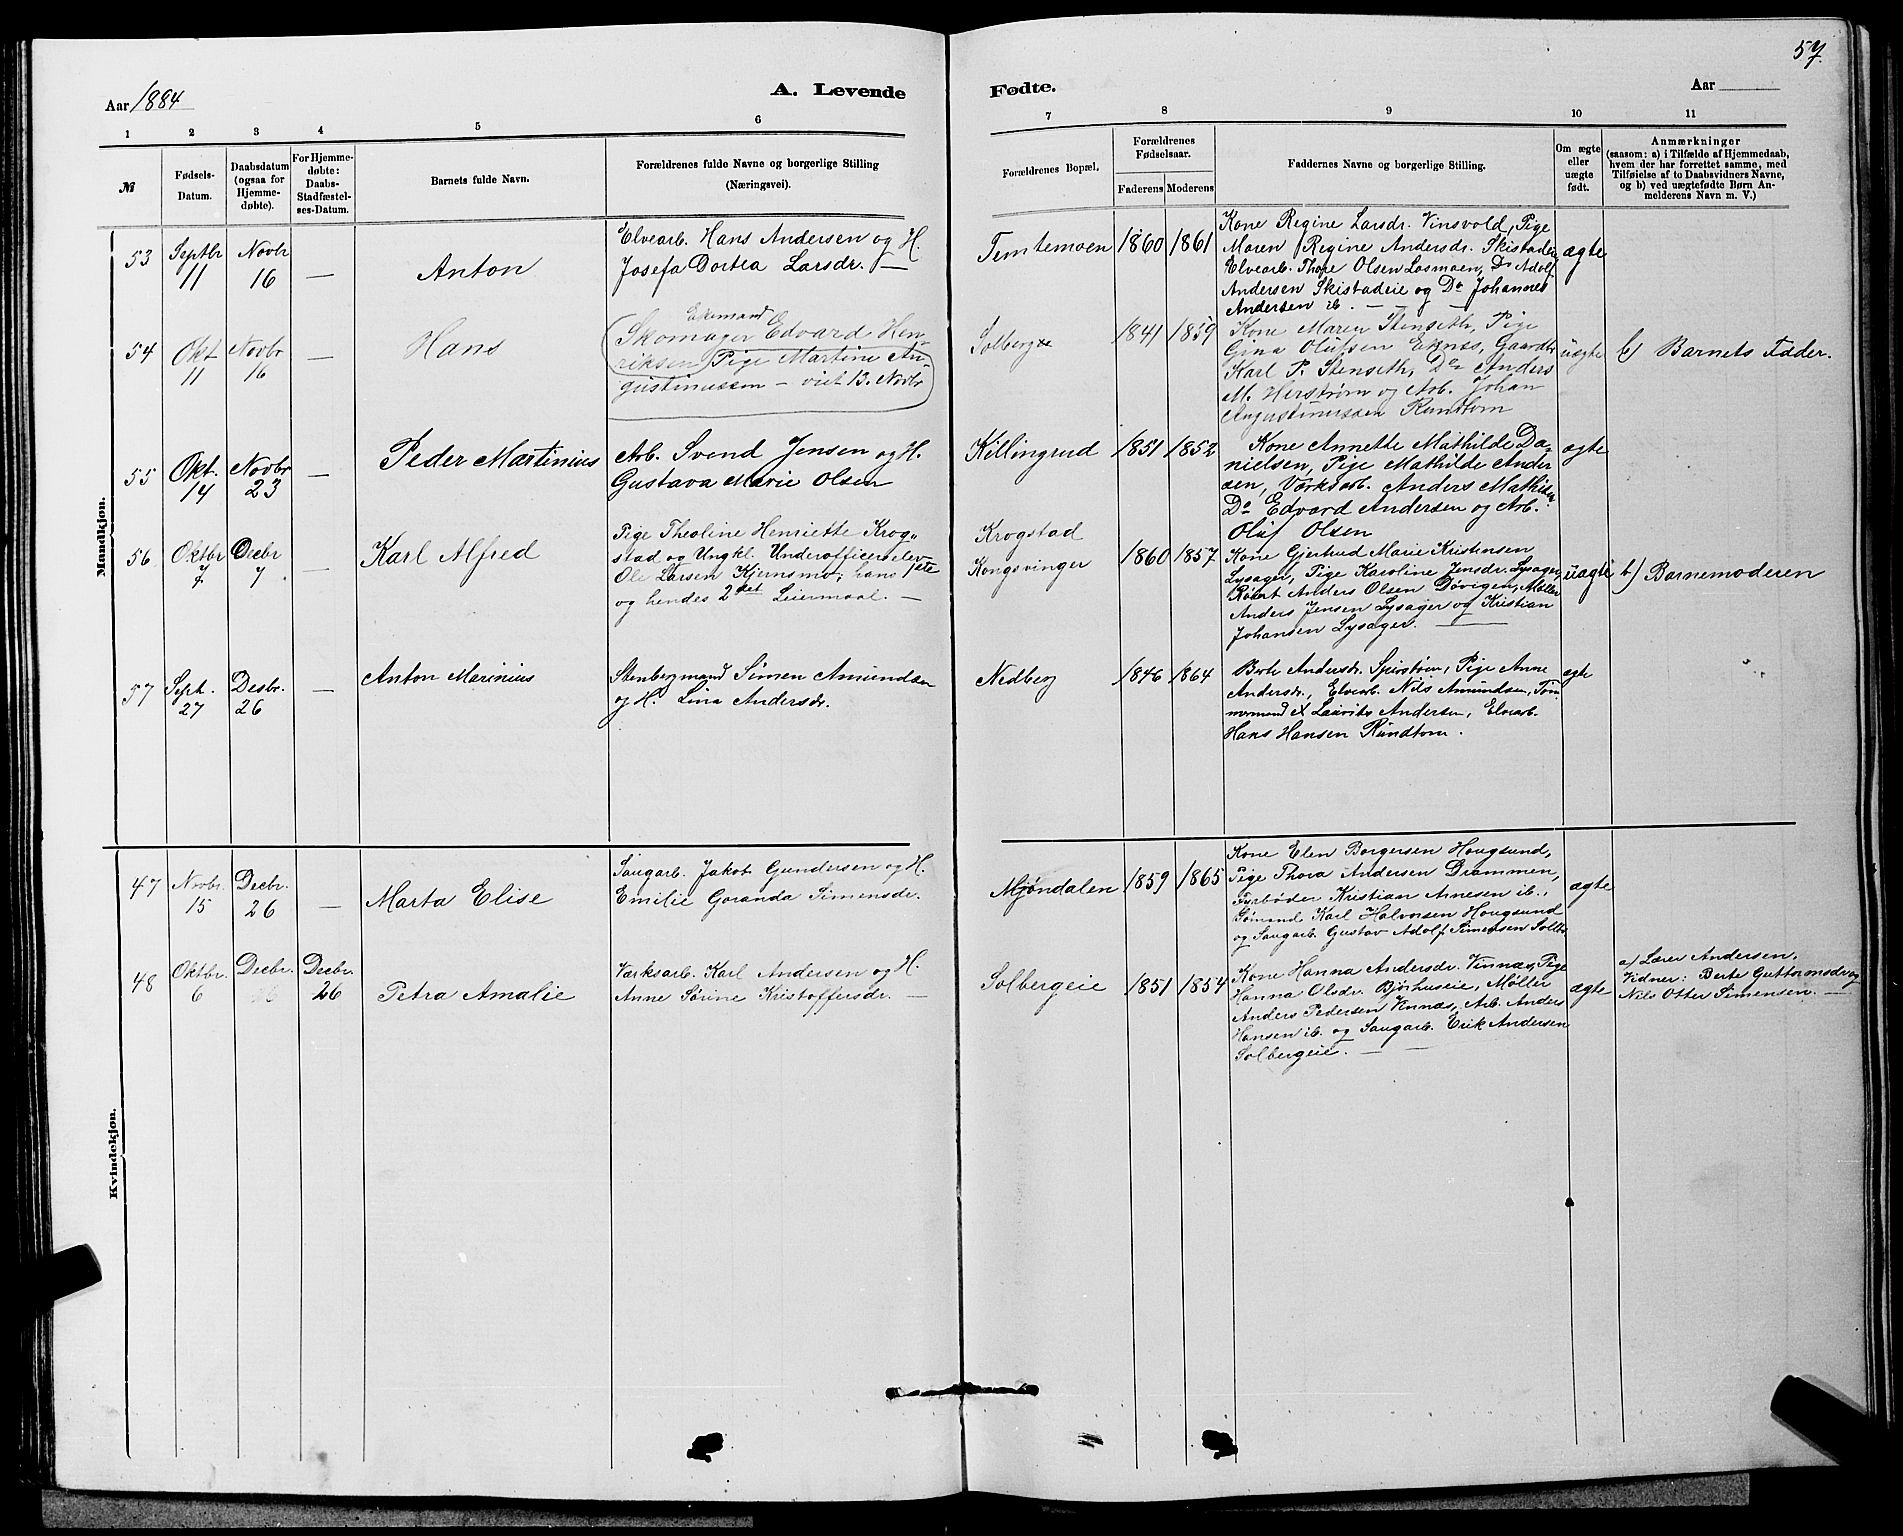 57.
Aar 1884
A. Levende
Fødte.
Aar
1 2 3 4 5 6 7 8 9 10 11
№
Fødsels-
Datum.
Daabsdatum
(ogsaa for
Hjemme-
døbte).
For Hjemme-
døbte:
Daabs-
Stadfæstel-
ses-Datum.
Barnets fulde Navn.
Forældrenes fulde Navne og borgerlige Stilling
(Næringsvei).
Forældrenes Bopæl.
Forældrenes
Fødselsaar.
Faderens Moderens
Faddernes Navne og borgerlige Stilling.
Om ægte
eller
uægte
født.
Anmærkninger
(saasom: a) i Tilfælde af Hjemmedaab,
hvem der har forrettet samme, med
Tilføielse af to Daabsvidners Navne,
og b) ved uægtefødte Børn An-
melderens Navn m. V.)
Mandkjøn.
53
Septbr
11
Novbr
16
—
Anton
Elvearb. Hans Andersen og H.
Josefa Dortea Larsdr. —
Temtemoen
1860
1861
Kone Regine Larsdr. Vinsvold, Pige
Maren Regine Andersdr. Skistadeie
Elvearb. Thore Olsen Losmoen, Do Adolf
Andersen Skistadeie og Do Johannes
Andersen ib. — — —
ægte
54
Okt
11
Novbr
16
—
Hans
Skomager Edvard Hen-
riksen, Pige Martine Au-
gustinussen — viet 13. Novbr
Solberg
1841
1859
Kone Maren Stenseth, Pige
Gina Olufsen Eknes, Gaardbr
Karl P. Stenseth, Do Anders
M. Herstrøm og Arb. Johan
Augustinussen Rundtom
uægte
b) Barnets Fader.
55
Okt.
14
Novbr
23
—
Peder Martinius
Arb. Svend Jensen og H.
Gustava Marie Olsen
Killingrud
1851
1852
Kone Annette Mathilde Da-
nielsen, Pige Mathilde Ander-
sen, Værksarb. Anders Mathisen
Do Edvard Andersen og Arb.
Oluf Olsen
ægte
56
Oktbr
7
Decbr
7
—
Karl Alfred
Pige Theoline Henriette Krog-
stad og Ungkl. Underofficerselev
Ole Larsen Kjernsmo; hans 1ste
og hendes 2det Leiermaal. —
Krogstad
Kongsvinger
1860
1857
Kone Gjertrud Marie Kristensen
Lysager, Pige Karoline Jensdr. Lysager,
Anders Olsen Døvigen, Møller
Anders Jensen Lysager og Kristian
Johansen Lysager. —
uægte
b) Barnemoderen
57
Sept.
27
Desbr.
26
—
Anton Marinius
Stenbergmand Simen Amundsen
og H. Lina Andersdr.
Nedberg
1846
1864
Berte Andersdr. Spirstøen, Pige Anne
Andersdr., Elvearb. Nils Amundsen, Tøm-
mermand Lauritz Andersen, Elvearb.
Hans Hansen Rundtom.
ægte
Kvindekjøn.
47
Novbr.
15
Decbr.
26
—
Marta Elise
Saugarb. Jakob Gundersen og H.
Emilie Goranda Simensdr.
Mjøndalen
1859
1865
Kone Elen Borgersen Hougsund,
Pige Thora Andersen Drammen,
Fyrbøder Kristian Arnesen ib.,
Sømand Karl Halvorsen Hougsund
og Saugarb. Gustav Adolf Simensen Solb.
ægte
48
Oktbr.
6
Decbr.
Decbr.
26
Petra Amalie
Værksarb. Karl Andersen og H.
Anne Sørine Kristoffersdr. —
Solbergeie
1851
1854
Kone Hanna Andersdr. Vinnæs, Pige
Hanna Olsdr. Bjørhuseie, Møller
Anders Pedersen Vinnæs, Arb. Anders
Hansen ib. og Saugarb. Erik Andersen
Solbergeie. — —
ægte
a) Lærer Andersen,
Vidner: Berte Guttormsdr og
Nils Otter Simensen. —